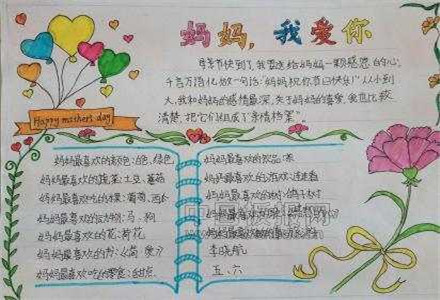 妈妈,我爱你
母亲节快到了,我要送给妈妈一颗感恩的心,
千言万语化做一句话:"妈妈祝你节日快乐!"从小到
大,我和妈妈的感情最深,关于妈妈的喜爱,我也比较
清楚,把它们组成了"亲情档案"。
Happy mothers day
妈妈最喜欢的颜色:白,绿色
妈妈最喜欢的蔬菜:土豆、蘑菇
妈妈最喜欢吃的水果:葡萄、
妈妈最喜欢的动物:马、狗
妈妈最喜欢的花:荷花
妈妈最喜欢的书:《简·爱》
妈妈最喜欢吃的零食:甜点
妈妈最喜欢的饮品:茶
妈妈最喜欢的游戏:连连看
妈妈最喜欢的树:
妈妈最喜欢
妈妈最喜欢
李晓航
五、六